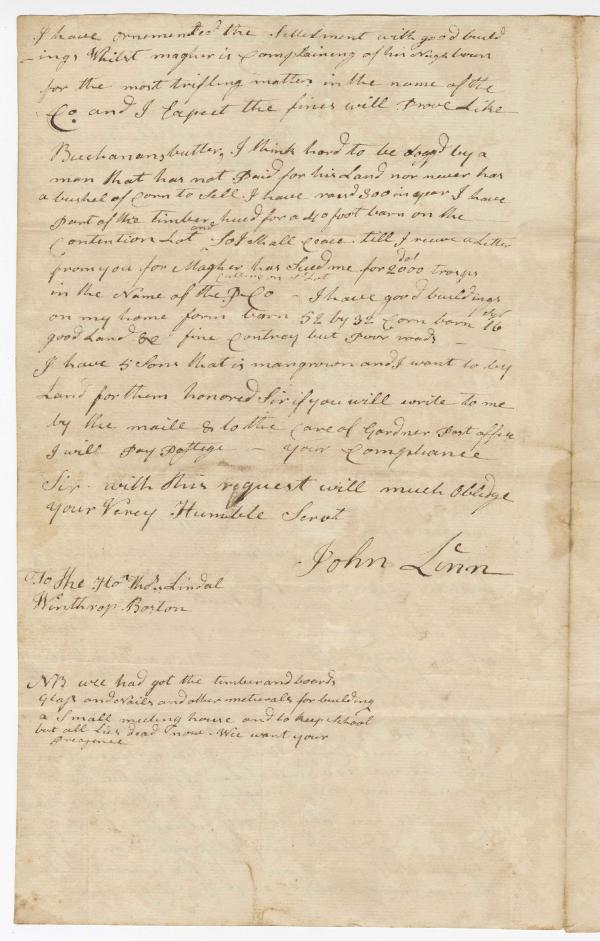 I have ornemented the Settelment with good build
-ings Whilst magher is Complaining of his Nighbours
for the most trifling matters in the name of the
Co. and I Expect the fines will Prove Like
Buchanans butter, I think hard to be dogg'd by a
man that has not Paid for his Land nor never has
a bushel of Corn to Sell I have raisd 300 in year I have
Part of the timber hued for a 40 foot barn on the
Contention Lot and So I shall Ceace till I receve a Letter
from you for Magher has Sued me for 2000 dol trasps
Cutting on s Lot
in the Name of the P. Co - I have good buildings
on my home farm barn 52 by 32 Corn barn 16
good Land & fine Contray but Poor roads -
I have 5 Sons that is mangrown and I want to by
Land for them honored Sir if you will write to me
by the maill & to the Care of Gardner Post office
I will Pay Postege - your Compliance
Sir with this request will much Oblidge
your Verey Humble Servt
John Linn
To The Hon. Thos. Lindal
Winthrop Boston
NB wee had got the timber and boards
Glass and Nails and other meterials for building
a Small meeting house and to keep School
but all Lies dead now. Wee want your
Presence